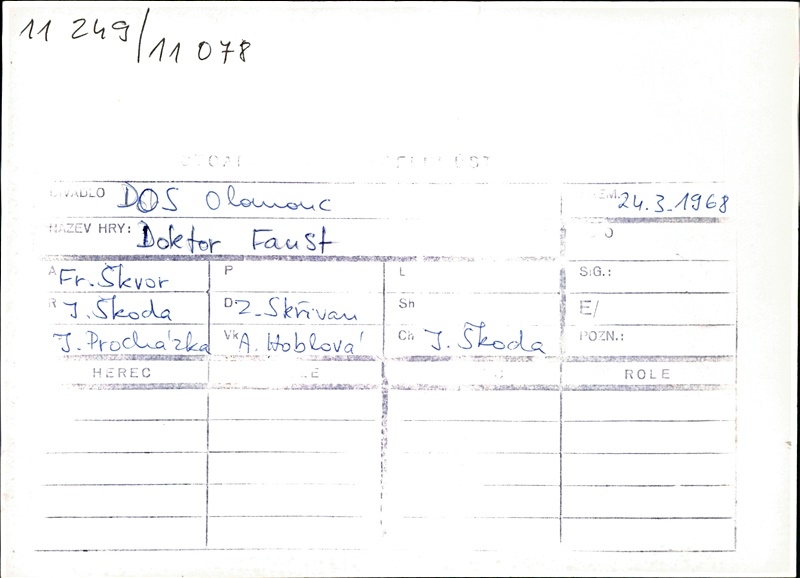 11 249/11 078
DIVADLO DOS Olomouc
24.3.1968
NÁZEV HRY: Doktor Faust
A Fr. Škvor P L SIG.:
R J. Škoda D Z. Skřivan Sh E/
J. Procházka Vk A. Hoblová Ch J. Škoda POZN.:
HEREC ROLE